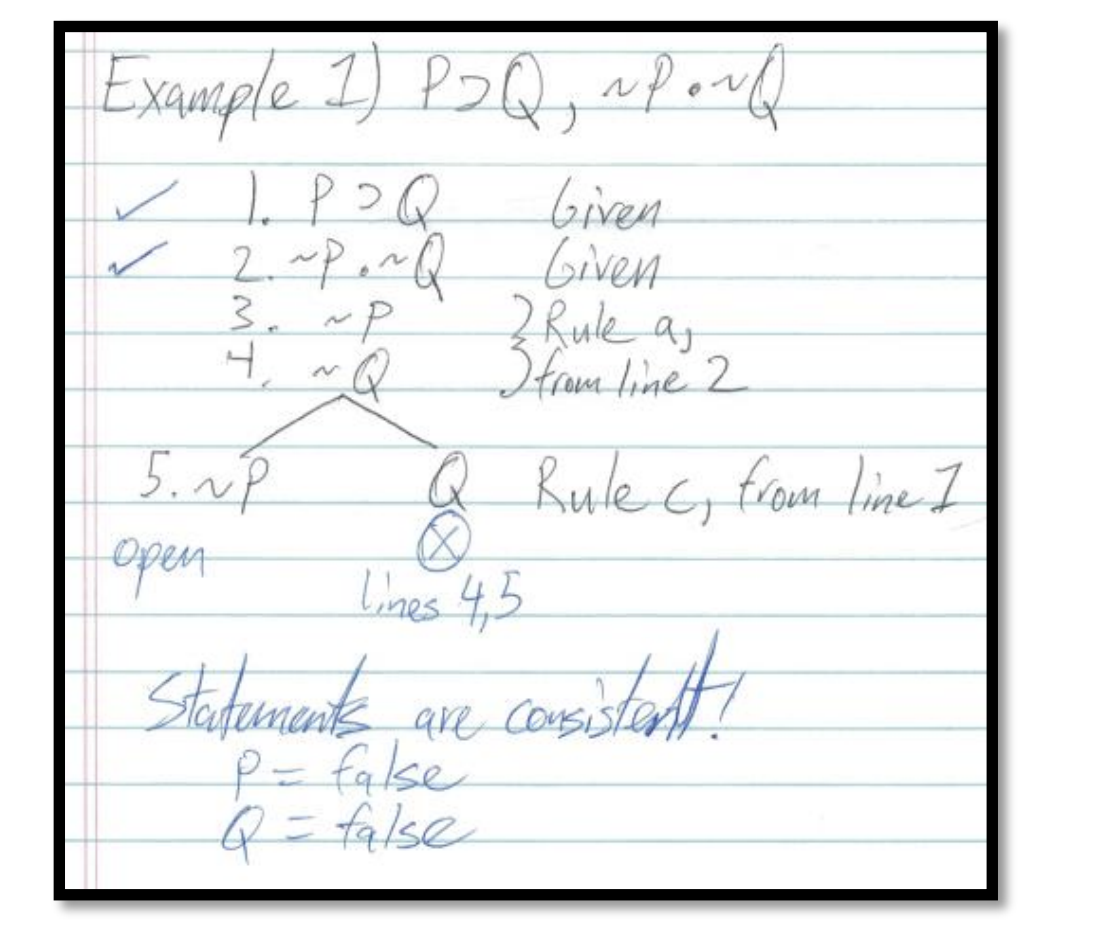 Example 1) P⊃Q, ~P•~Q
✓ 1. P⊃Q Given
✓ 2. ~P.~Q Given
3. ~P } Rule a,
4. ~Q } from line 2
5. ~P Q Rule c, from line 1
open ⊗
lines 4,5
Statements are consistent!
P = false
Q = false